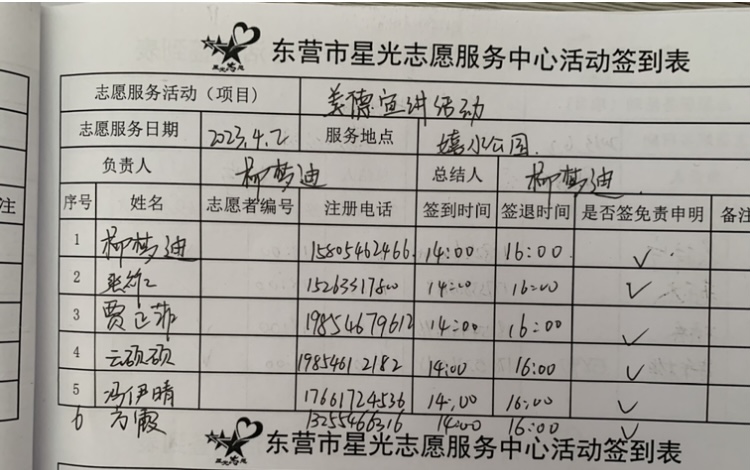 东营市星光志愿服务中心活动签到表
志愿服务活动（项目） 美德宣讲活动
志愿服务日期 2023.4.2 服务地点 嬉水公园.
负责人 柳梦迪 总结人 柳梦迪.
序号 姓名 志愿者编号 注册电话 签到时间 签退时间 是否签免责申明 备注
1 柳梦迪 15805462466 14:00 16:00 ✓
2 15263317800 14:00 16:00 ✓
3 贾正菲 19854679612 14:00 16:00 ✓
4 云硕硕 19854612182 14:00 16:00 ✓
5 冯伊晴 17661724536 14:00 16:00 ✓
6 方霞 13255466316 14:00 16:00 ✓
东营市星光志愿服务中心活动签到表